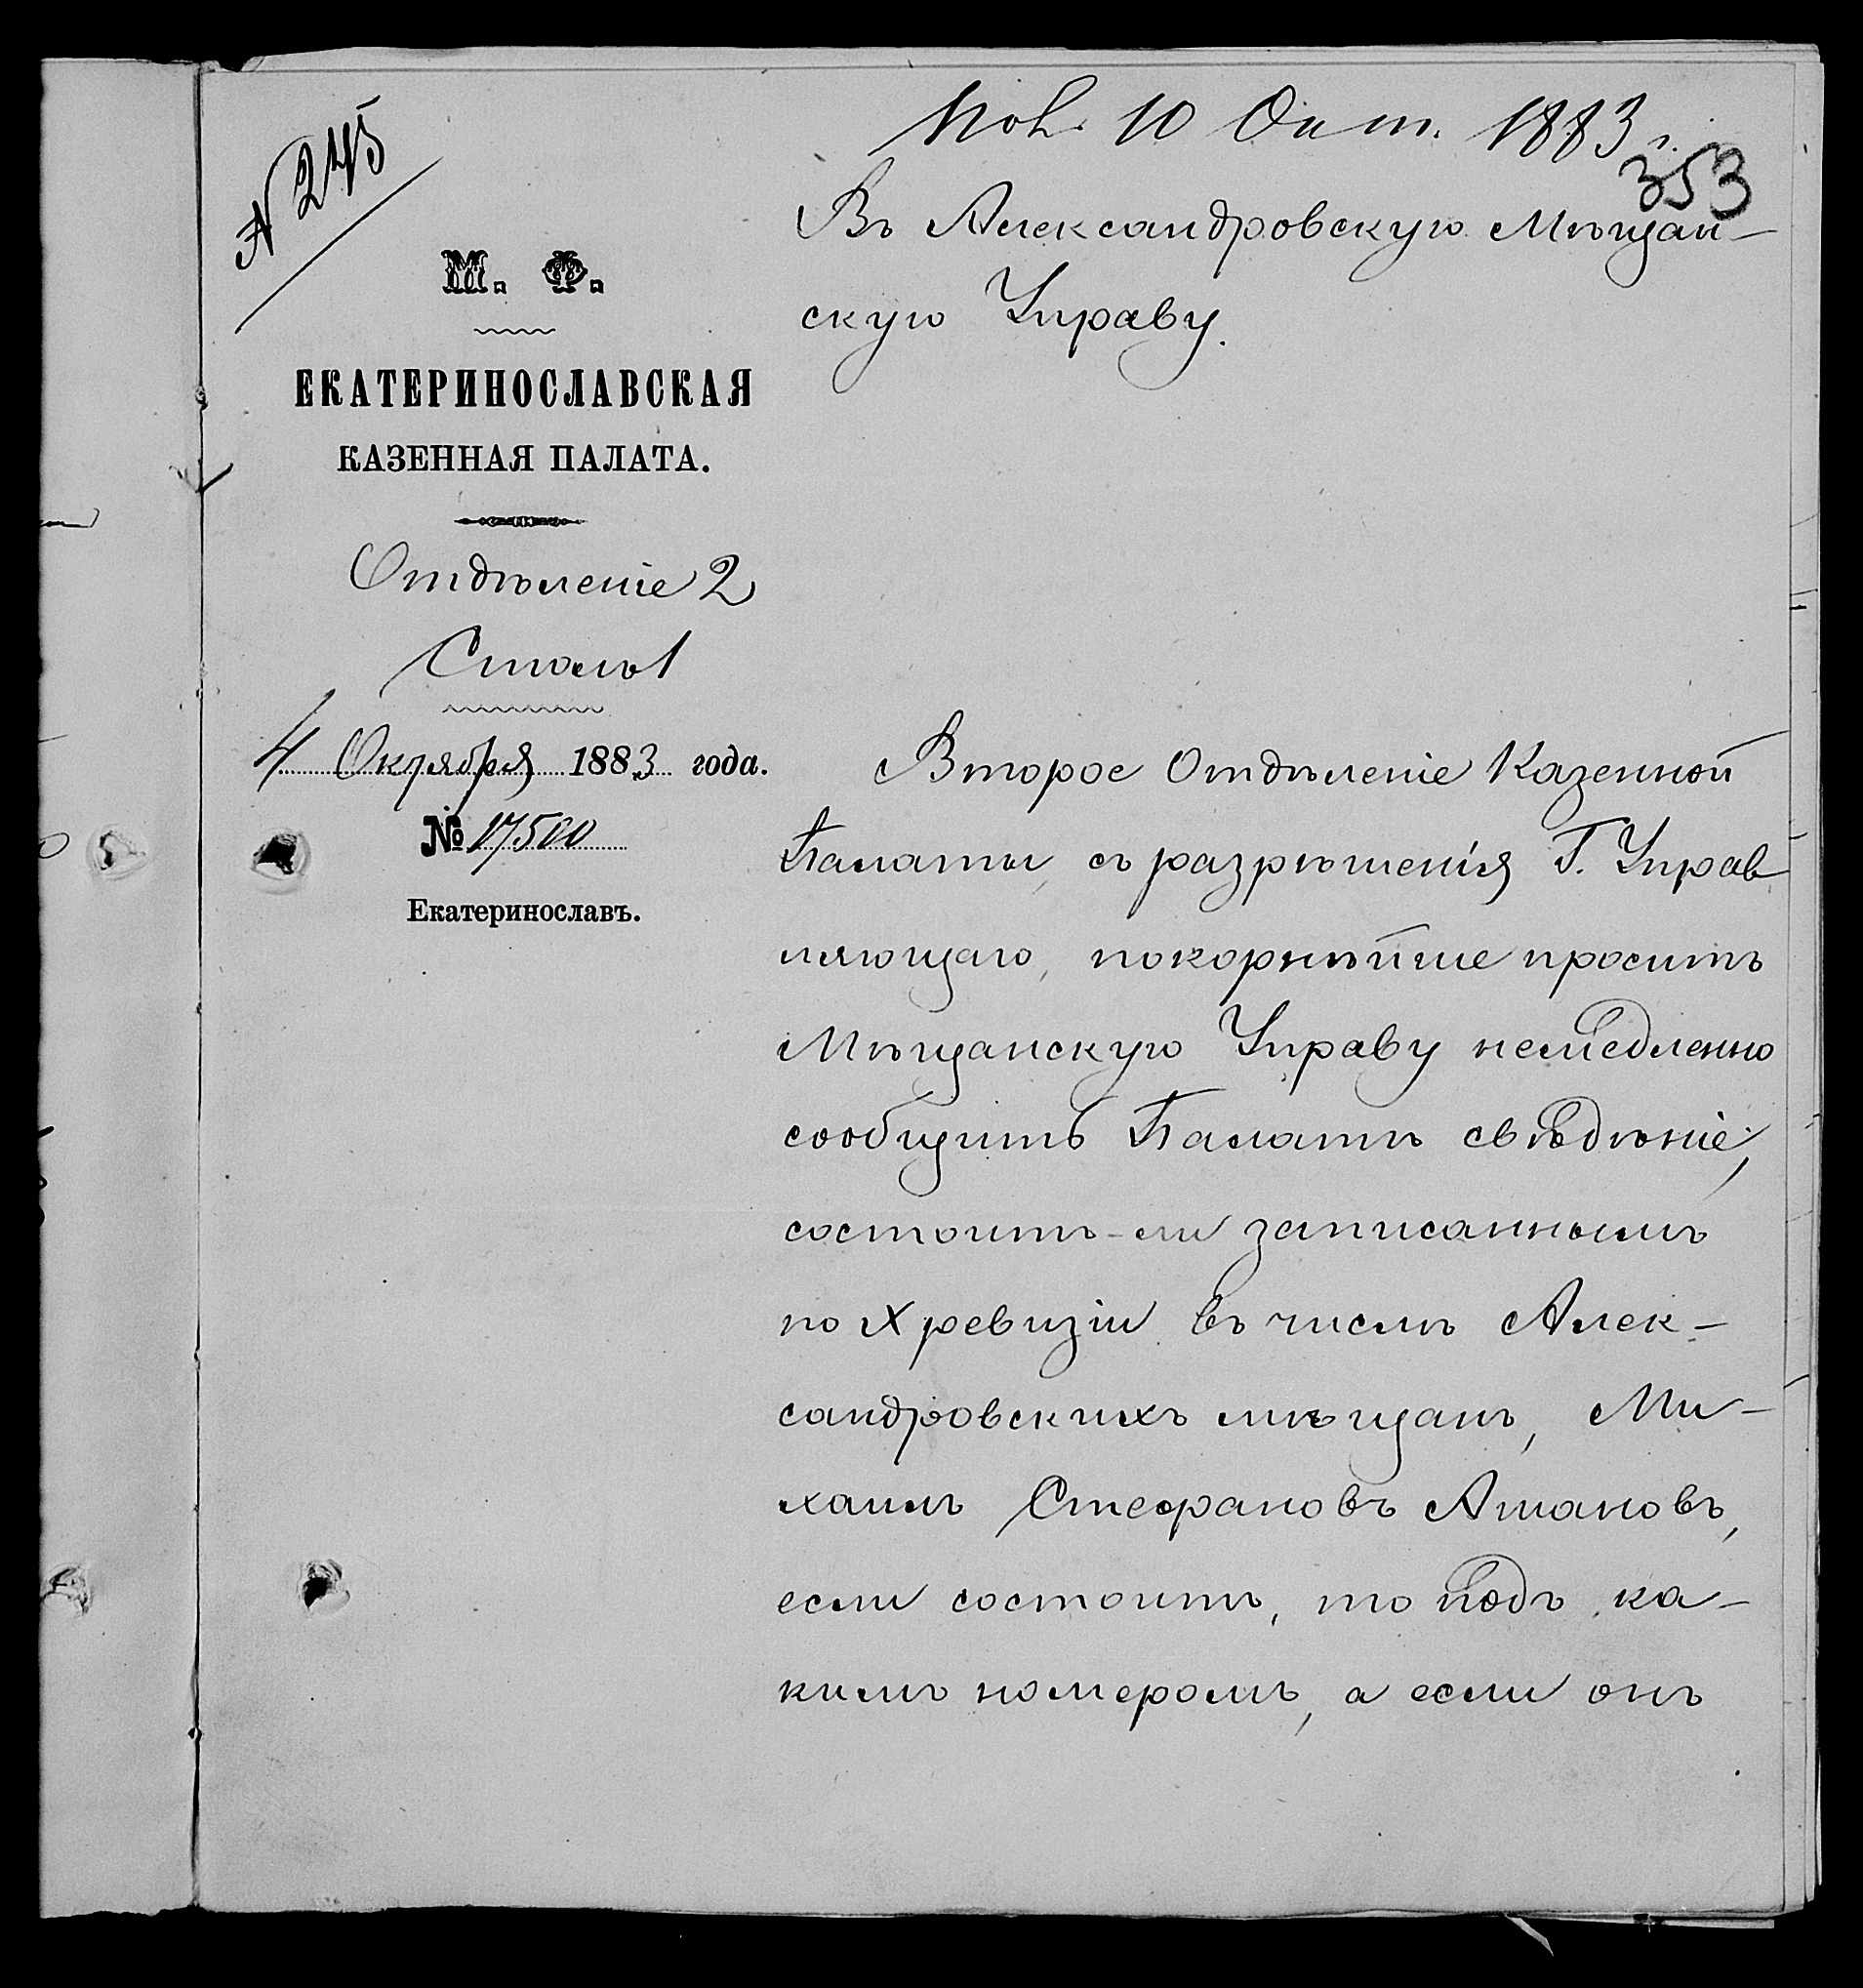 № 245
Пол. 10 Окт. 1883 г.
353
М. Ф.
ЕКАТЕРИНОСЛАВСКАЯ
КАЗЕННАЯ ПАЛАТА.
Отдѣленіе 2
Столъ 1
4 Октября 1883 года.
№ 17500
Екатеринославъ.
Въ Александровскую Мѣщан-
скую Управу.
Второе Отдѣленіе Казенной
Палаты, съ разрѣшенія Г. Управ
ляющаго, покорнѣйше проситъ
Мѣщанскую Управу немедленно
сообщить Палатѣ свѣдѣніе,
состоитъ-ли записаннымъ
по X ревизіи въ числѣ Алек-
сандровскихъ мѣщанъ, Ми-
хаилъ Стефановъ Атановъ,
если состоитъ, то подъ ка-
кимъ номеромъ, а если онъ